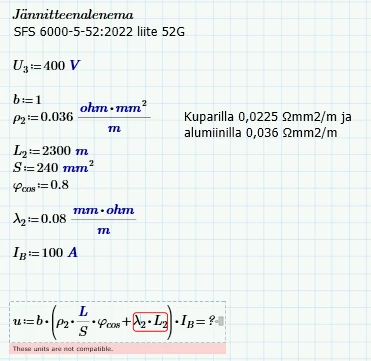 Jännitteenalenema
SFS 6000-5-52:2022 liite 52G
U₃:=400 V
b:=1
ρ₂:=0.036 ohm·mm²/m
Kuparilla 0,0225 Ωmm2/m ja
alumiinilla 0,036 Ωmm2/m
L₂:=2300 m
S:=240 mm²
φcos:=0.8
λ₂:=0.08 mm·ohm/m
I_B:=100 A
u:=b·(ρ₂·L/S·φcos+λ₂·L₂)·I_B=?
These units are not compatible.